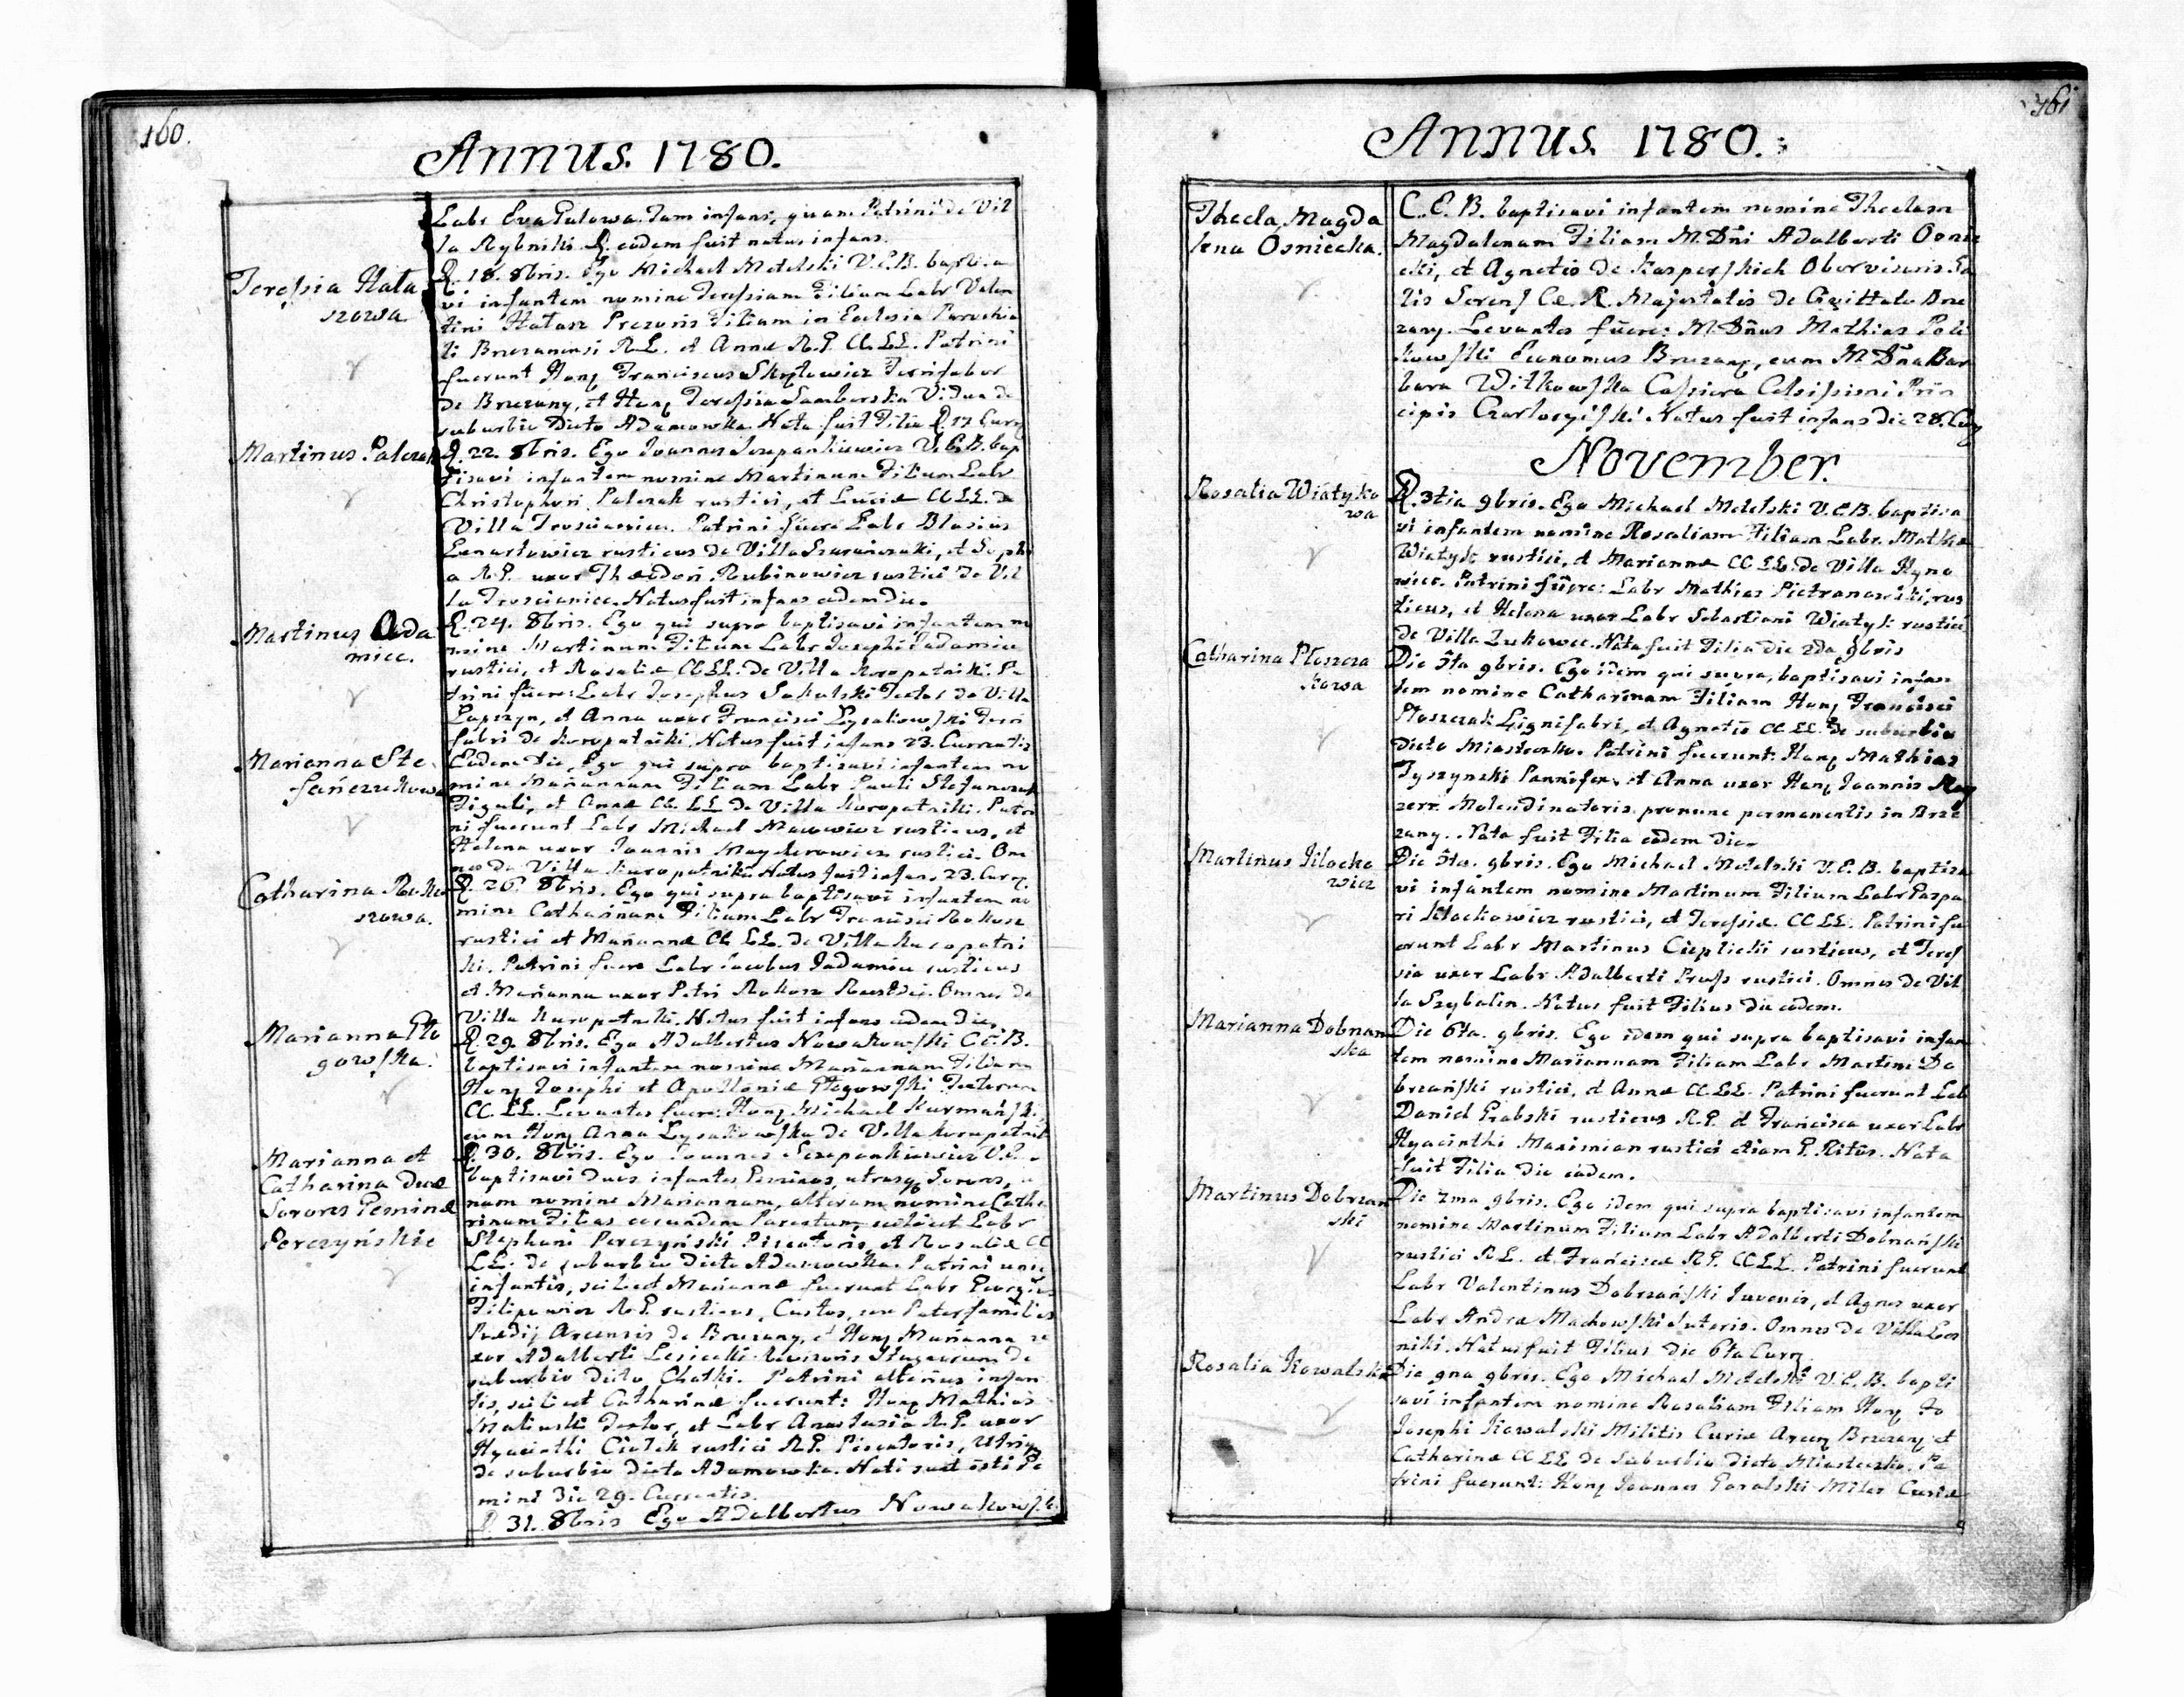 160.
Annus. 1780.
Labr Eva Gutowa. Tam infans, quam Patrini de Vil
la Rybniki D. eodem fuit natus infans.
Teressia Hata
szowa.
D. 18. 8bris. Ego Michael Metelski V.C.B. baptisa
vi infantem nomine Teressiam Filiam Labr Valen
tini Hatasz Preconis Filiam in Ecclesia Parochia
li Brzezanensi R.L. et Annæ R.G. CC.LL. Patrini
fuerunt Hon. Franciscus Ferrifaber
de Brzezany, et Hon. Teressia Samborska Vidua de
suburbio Dicto Adamowka. Nata fuit Filia D. 17 Curr.
Martinus Palczak
D. 22. 8bris. Ego Joannes Szczepankiewicz V.C.B. bap
tisavi infantem nomine Martinum Filium Labr
Christophori Palczak rustici, et Luciæ CC.LL. de
Villa Trosciianiec. Patrini fuere Labr Blasius
Lenartowicz rusticus de Villa et Sophi
a R.G. uxor Theodori Rubinowicz rustici de Vil
la Troscianiec. Natus fuit infans eadem die.
Martinus
miec.
D. 24. 8bris. Ego qui supra baptisavi infantem no
mine Martinum Filium Labr Josephi Jadamiec
rustici, et Rosaliæ CC.LL. de Villa Koropatniki. Pa
trini fuere: Labr Josephus Sokalski Textor de Villa
Lapszyn, et Anna uxor Francisci Lysakowski Ferri
fabri de Koropatniki. Natus fuit infans 23. Currentis
Marianna Ste
fańczukowa
Eadem die, Ego qui supra baptisavi infantem no
mine Mariannam Filiam Labr Pauli Stefanczuk
Figuli, et Annæ CC.LL de Villa Koropatniki. Patri
ni fuerunt Labr Michael rusticus, et
Helena uxor Joannis Mayderowicz rustici. Om
nes de Villa Kuropatniki Natus fuit infans. 23. Curr.
Catharina Roko
szowa.
D. 26. 8bris. Ego qui supra baptisavi infantem no
mine Catharinam Filiam Labr Francisci Rokosz
rustici et Mariannæ CC LL. de Villa Kuropatni
ki. Patrini fuere Labr Jacobus Jadamiec rusticus
et Marianna uxor Petri Rokosz Rustici. Omnes de
Villa Kuropatniki. Natus fuit infans eadem die.
Marianna Gło
gowska.
D. 29. 8bris. Ego Adalbertus Nowakowski C.E.B.
baptisavi infantem nomine Mariannam Filiam
Hon. Josephi et Apolloniæ Głogowski Textorum
CC.LL. Levantes fuere: Hon. Michael Kurmański,
cum Hon. Anna Lysakowska de Villa Koropatnik
Marianna et
Catharina duæ
Sorores Geminæ
Perczyńskie
D. 30. 8bris. Ego Joannes Szczepankiewicz V.C.
baptisavi duos infantes Geminos, utrasq. Sorores, u
nam nomine Mariannam, alteram nomine Catha
rinam Filias eorundem Parentum, scilicet Labr
Stephani Perczyński Piscatoris, et Rosaliæ CC
LL. de suburbio dicto Adamowka. Patrini unis
infantis, scilicet Mariannæ fuerunt Labr Georgius
Filipowicz R.G. rusticus, Custos, seu Paterfamilias
Prædij Arcensis de Brzezany, et Hon. Marianna u
xor Adalberti Lesiecki Revisoris Stagnorum de
suburbio dicto Chatki. Patrini alterius infan
tis, scilicet Catharinæ fuerunt: Hon. Mathias
Malinski Textor, et Labr Anastasia R.G. uxor
Hyacinthi Ciołek rustici R.G. Piscatoris, Utriq.
de suburbio dicto Adamowka. Nati sunt isti Ge
mini Die 29. Currentis.
D. 31. 8bris Ego Adalbertus Nowakowski.
161
Annus. 1780.
Thecla, Magda
lena Osniecka.
C.E.B. baptisavi infantem nomine Theclam
Magdalenam Filiam M. Dni Adalberti Osnie
cki, et Agnetis de Kasperskich Obervisoris Sa
lis Sereniss Cæ. R. Majestatis de Civittate Brze
zany. Levantes fuere: M. Dnus Mathias Poli
kowski Economus Brzezan, cum M. Dna Bar
bara Witkowska Cassiera Celsissimi Prin
cipis Czartoryiski. Natus fuit infans die 28. Cur
November.
Rosalia Wiatyko
wa
D. 3tia 9bris. Ego Michael Metelski V.C.B. baptisa
vi infantem nomine Rosaliam Filiam Labr. Mathiæ
Wiatyk rustici, et Mariannæ CC LL. de Villa Hyno
wice. Patrini fuere: Labr Mathias Pietranowski, rus
ticus, et Helena uxor Labr Sebastiani Wiatyk rustici
de Villa Zukowce. Nata fuit Filia die 2da 9bris
Catharina Płoszcza
kowa
Die 5ta 9bris. Ego idem qui supra, baptisavi infan
tem nomine Catharinam Filiam Hon. Francisci
Płoszczak Lignifabri, et Agnetis CC.LL. de suburbio
dicto Miasteczko. Patrini fuerunt: Hon. Mathias
Tyszynski Pannifex, et Anna uxor Hon. Joannis
zerr. Molendinatoris pronunc permanentis in Brze
zany. Nata fuit Filia eadem die.
Martinus Klocko
wicz
Die 5ta. 9bris. Ego Michael Metelski V.C.B. baptisa
vi infantem nomine Martinum Filium Labr Gaspa
ri Klockowicz rustici, et Teressiæ CC LL. Patrini fu
erunt Labr Martinus Cieplicki rusticus, et Teres
sia uxor Labr Adalberti Prus rustici. Omnes de Vil
la Szybalin. Natus fuit Filius die eadem.
Marianna Dobrzan
ska
Die 6ta. 9bris. Ego idem qui supra baptisavi infan
tem nomine Mariannam Filiam Labr Martini Do
brzański rustici, et Annæ CC.LL. Patrini fuerunt Lab
Daniel Grabski rusticus R.G. et Francisca uxor Labr
Hyacinthi Maximian rustici etiam G. Ritus. Nata
fuit Filia die eadem.
Martinus Dobrzan
ski
Die 7ma 9bris. Ego idem qui supra baptisavi infantem
nomine Martinum Filium Labr Adalberti Dobrzański
rustici R.L. et Franciscæ R.G. CC LL. Patrini fuerunt
Labr Valentinus Dobrzański Juvenis, et Agnes uxor
Labr Andræ Machowski Sutoris. Omnes de Villa Les
niki. Natus fuit Filius die 6ta Curr.
Rosalia Kowalska
Die 9na 9bris. Ego Michael Metelski V.C.B. bapti
savi infantem nomine Rosaliam Filiam Hon. Jo
Josephi Kowalski Militis Curiæ Arcen. Brzezan. et
Catharinæ CC LL de Suburbio dicto Miasteczko. Pa
trini fuerunt: Hon. Joannes Goralski Miles Curiæ